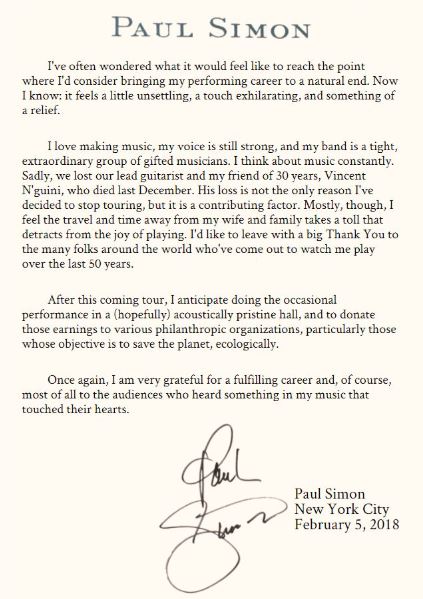 PAUL SIMON
I've often wondered what it would feel like to reach the point
where I'd consider bringing my performing career to a natural end. Now
I know: it feels a little unsettling, a touch exhilarating, and something of
a relief.
I love making music, my voice is still strong, and my band is a tight,
extraordinary group of gifted musicians. I think about music constantly.
Sadly, we lost our lead guitarist and my friend of 30 years, Vincent
N'guini, who died last December. His loss is not the only reason I've
decided to stop touring, but it is a contributing factor. Mostly, though, I
feel the travel and time away from my wife and family takes a toll that
detracts from the joy of playing. I'd like to leave with a big Thank You to
the many folks around the world who've come out to watch me play
over the last 50 years.
After this coming tour, I anticipate doing the occasional
performance in a (hopefully) acoustically pristine hall, and to donate
those earnings to various philanthropic organizations, particularly those
whose objective is to save the planet, ecologically.
Once again, I am very grateful for a fulfilling career and, of course,
most of all to the audiences who heard something in my music that
touched their hearts.
Paul
Simon
Paul Simon
New York City
February 5, 2018